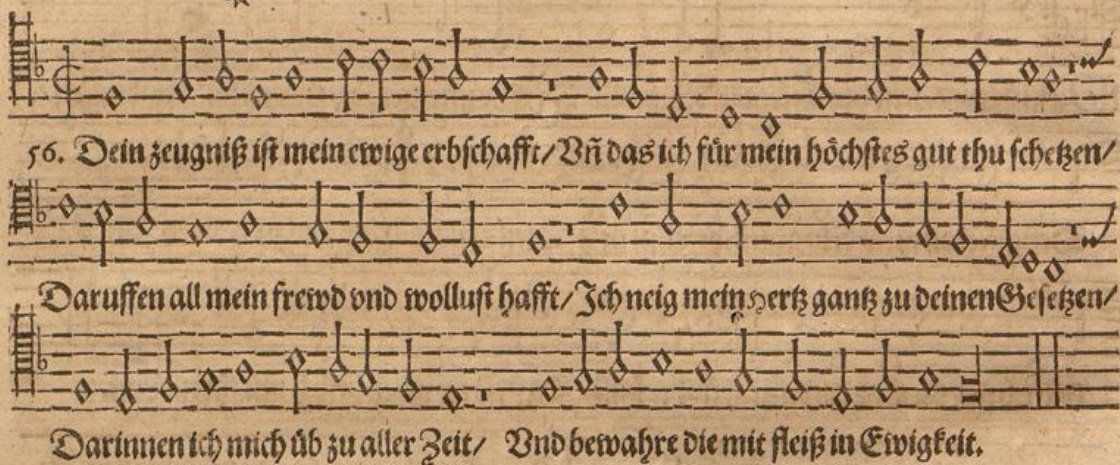 56. Dein zeugniß ist mein ewige erbschafft/ Vñ das ich für mein höchstes gut thu schetzen/
Daruffen all mein frewd vnd wollust hafft/ Ich neig mein hertz gantz zu deinen Gesetzen/
Darinnen ich mich üb zu aller Zeit/ Vnd bewahre die mit fleiß in Ewigkeit.